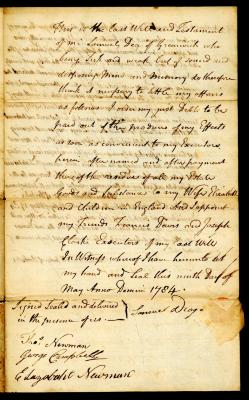 This is the last Will and Testament
of me Samuel Deg of Greenwich who
being Sick and weak but of sound and
disposing Mind and Memory do therefore
think it necessary to settle my affairs
as follows I order my just Debts to be
paid out of the produce of my Effects
as soon as convenient to my Executors
herein after named and after payment
thereof the residue of all my Estate
Goods and Substance to my Wife Elizabeth
and Children in England And I appoint
my Friends Francis Daws and Joseph
Clark Executors of my last Will
In Witness whereof I have hereunto set
my hand and Seal this ninth Day of
May Anno Domini 1784.
Signed Sealed and delivered
in the presence of us
Samuel Deg
Thos. Newman
George Campbell
Elizabeth Newman